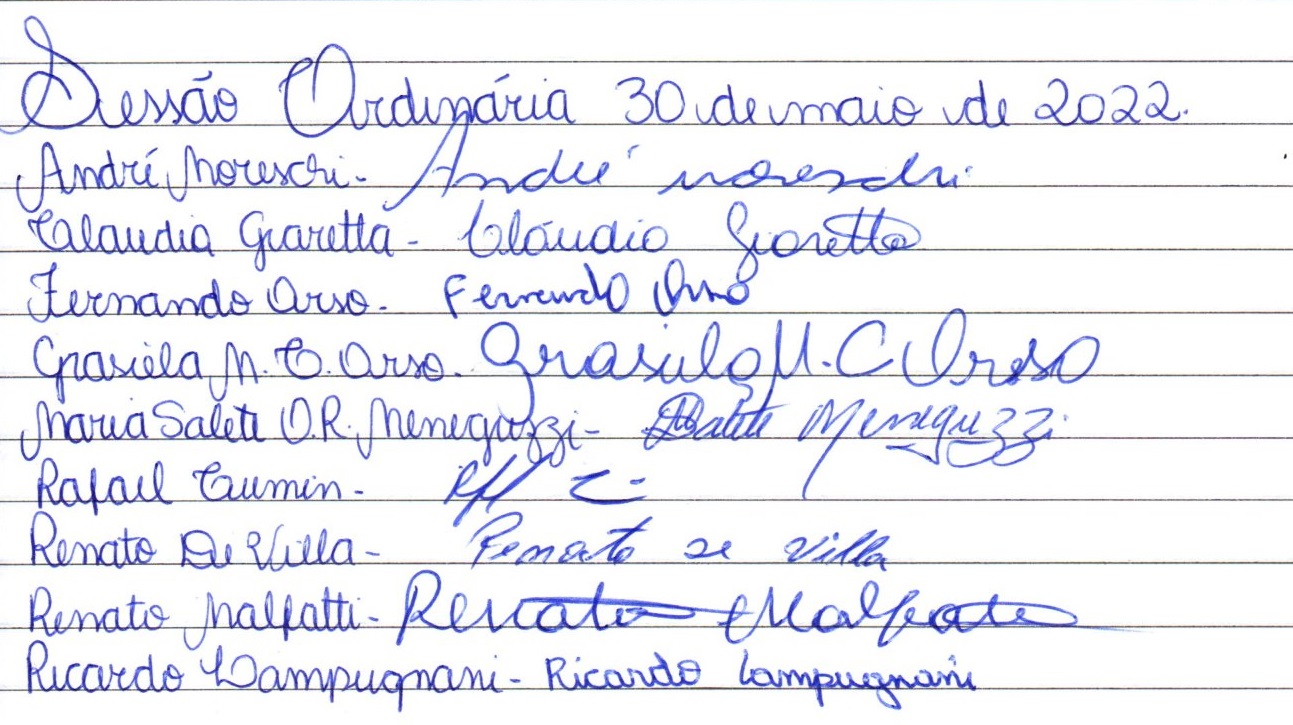 Sessão Ordinária 30 de maio de 2022.
André Moreschi - André Moreschi
Claudia Giaretta - Cláudia Giaretta
Fernando Orso. Fernando Orso
Grasiéla M. C. Orso. Grasiela M. C Orso
Maria Salete O.R. Menegazzi - Salete Meneguzzi
Rafael - 
Renato De Villa - Renato De Villa
Renato Malfatti - Renato Malfatti
Ricardo Lampugnani - Ricardo Lampugnani